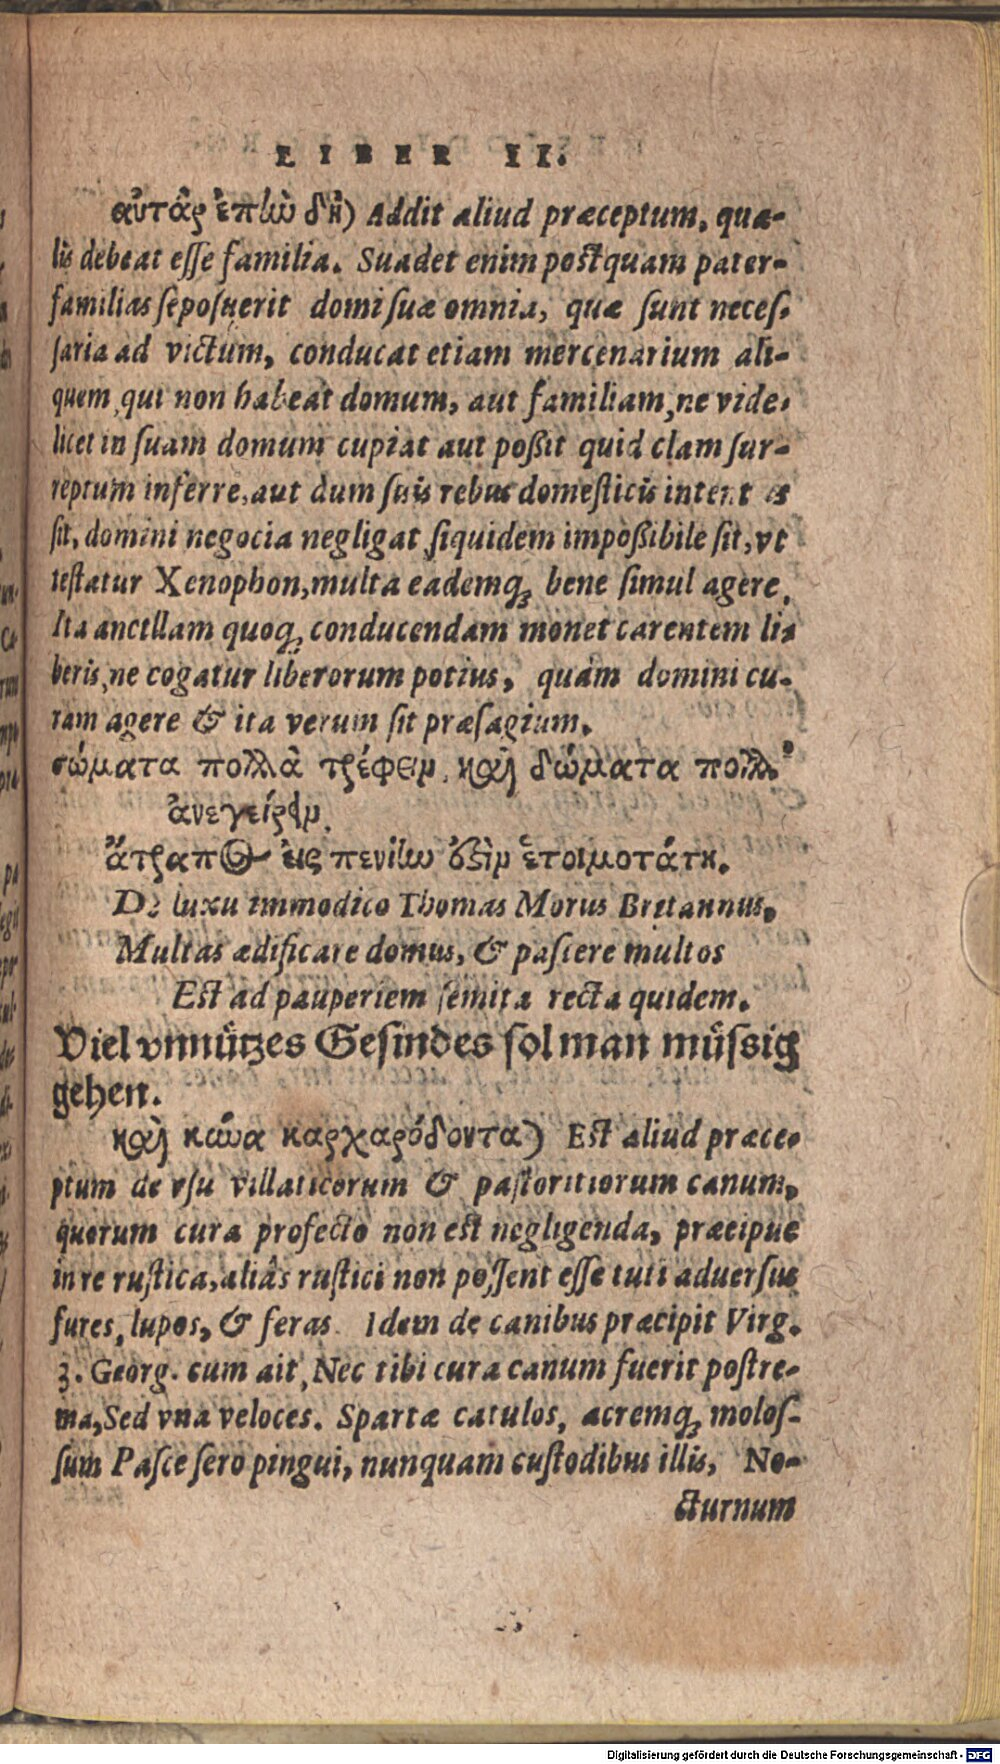 LIBER II.
αὐτὰρ ἐπὶω δὴ) Addit aliud præceptum, qua-
lis debeat esse familia. Suadet enim postquam pater-
familias seposuerit domi suæ omnia, quæ sunt neces-
saria ad victum, conducat etiam mercenarium ali-
quem, qui non habeat domum, aut familiam, ne vide-
licet in suam domum cupiat aut poßit quid clam sur-
reptum inferre, aut dum suis rebus domesticis intentus
sit, domini negocia negligat, siquidem impoßibile sit, vt
testatur Xenophon, multa eademq́; bene simul agere.
Ita ancillam quoq́; conducendam monet carentem li-
beris, ne cogatur liberorum potius, quàm domini cu-
ram agere & ita verum sit præsagium.
σώματα πολλὰ τρέφειν, καὶ δώματα πολλ’
ἀνεγείρειν,
ἄτραπος εἰς πενίην ὅξιν ἑτοιμοτάτη.
De luxu immodico Thomas Morus Britannus,
Multas ædificare domus, & pascere multos
Est ad pauperiem semita recta quidem.
Viel vnnützes Gesindes sol man müssig
gehen.
καὶ κύνα καρχαρόδοντα) Est aliud præce-
ptum de vsu villaticorum & pastoritiorum canum,
quorum cura profecto non est negligenda, præcipue
in re rustica, aliâs rustici non possent esse tuti aduersus
fures, lupos, & feras. Idem de canibus præcipit Virg.
3. Georg. cum ait, Nec tibi cura canum fuerit postre-
ma, Sed vna veloces. Spartæ catulos, acremq́; molos-
sum Pasce sero pingui, nunquam custodibus illis, No-
cturnum
Digitalisierung gefördert durch die Deutsche Forschungsgemeinschaft - DFG